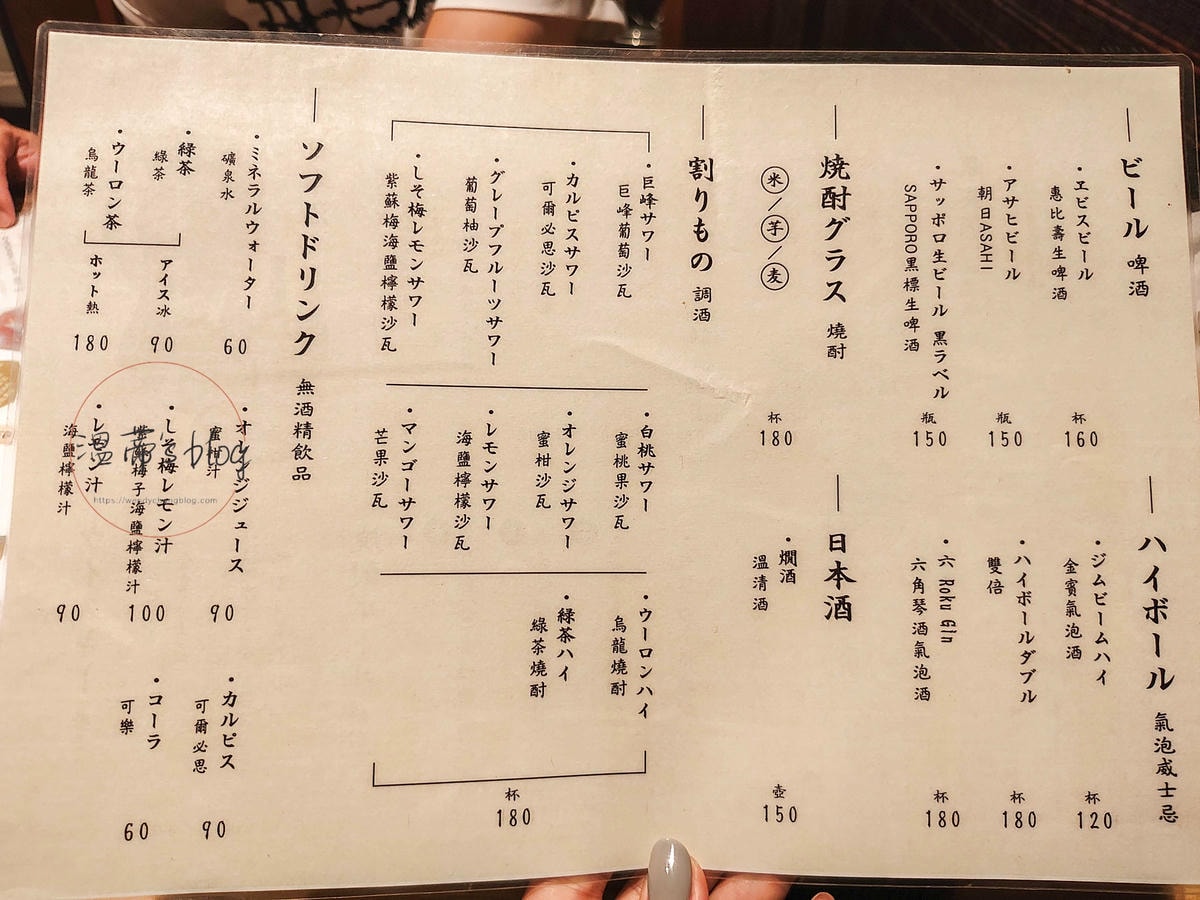 ビール 啤酒
・ヱビスビール
惠比壽生啤酒
杯
160
・アサヒビール
朝日ASAHI
瓶
150
・サッポロ生ビール 黒ラベル
SAPPORO黑標生啤酒
瓶
150
ハイボール 氣泡威士忌
・ジムビームハイ
金賓氣泡酒
杯
120
・ハイボールダブル
雙倍
杯
180
・六 Roku Gin
六角琴酒氣泡酒
杯
180
焼酎グラス 燒酎
米/芋/麦
杯
180
日本酒
・燗酒
溫清酒
壺
150
割りもの 調酒
・巨峰サワー
巨峰葡萄沙瓦
・カルピスサワー
可爾必思沙瓦
・グレープフルーツサワー
葡萄柚沙瓦
・しそ梅レモンサワー
紫蘇梅海鹽檸檬沙瓦
・白桃サワー
蜜桃果沙瓦
・オレンジサワー
蜜柑沙瓦
・レモンサワー
海鹽檸檬沙瓦
・マンゴーサワー
芒果沙瓦
・ウーロンハイ
烏龍燒酎
・緑茶ハイ
綠茶燒酎
杯
180
ソフトドリンク 無酒精飲品
・ミネラルウォーター
礦泉水
60
・緑茶
綠茶
・ウーロン茶
烏龍茶
アイス冰
90
ホット熱
180
・オレンジジュース
蜜柑汁
90
・しそ梅レモン汁
紫蘇梅子海鹽檸檬汁
100
・レモン汁
海鹽檸檬汁
90
・カルピス
可爾必思
90
・コーラ
可樂
60